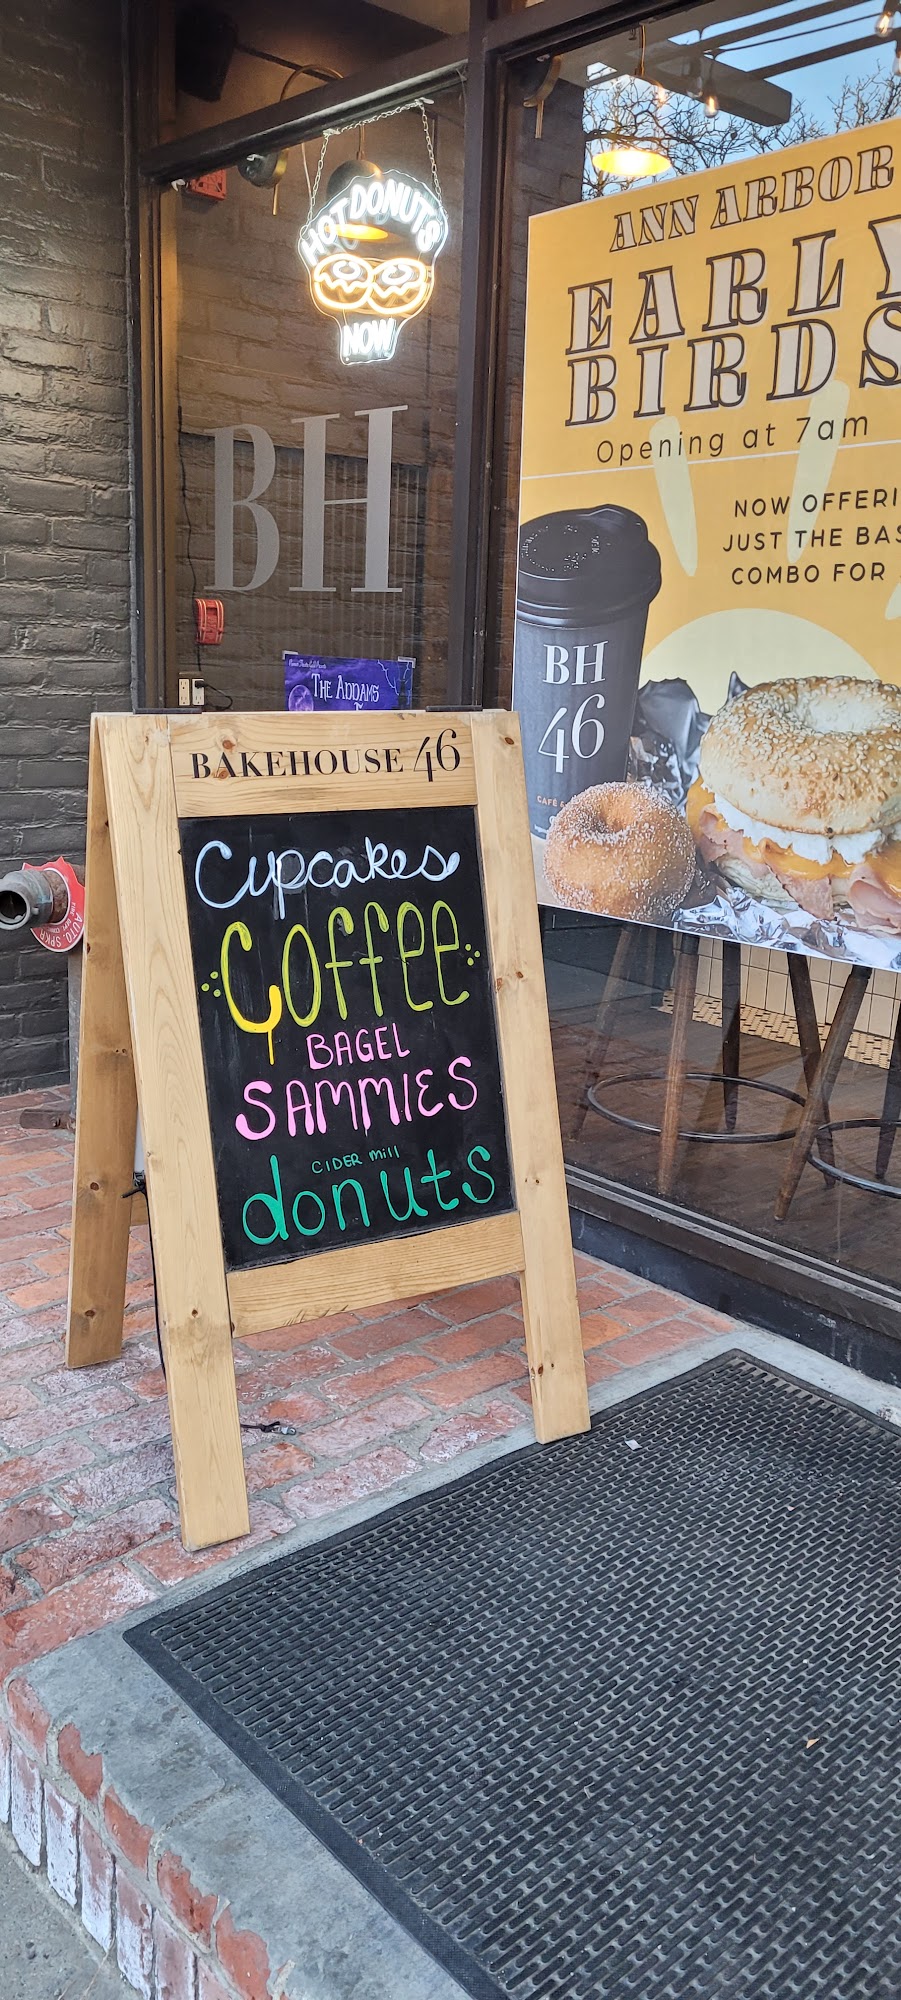 HOT DONUTS
NOW
BH
THE ADDAMS
ANN ARBOR
EARLY
BIRDS
Opening at 7am
NOW OFFERI
JUST THE BAS
COMBO FOR
BH
46
CAFÉ
BAKEHOUSE 46
Cupcakes
Coffee
BAGEL
SAMMIES
CIDER mill
donuts
AUTO. SPKR